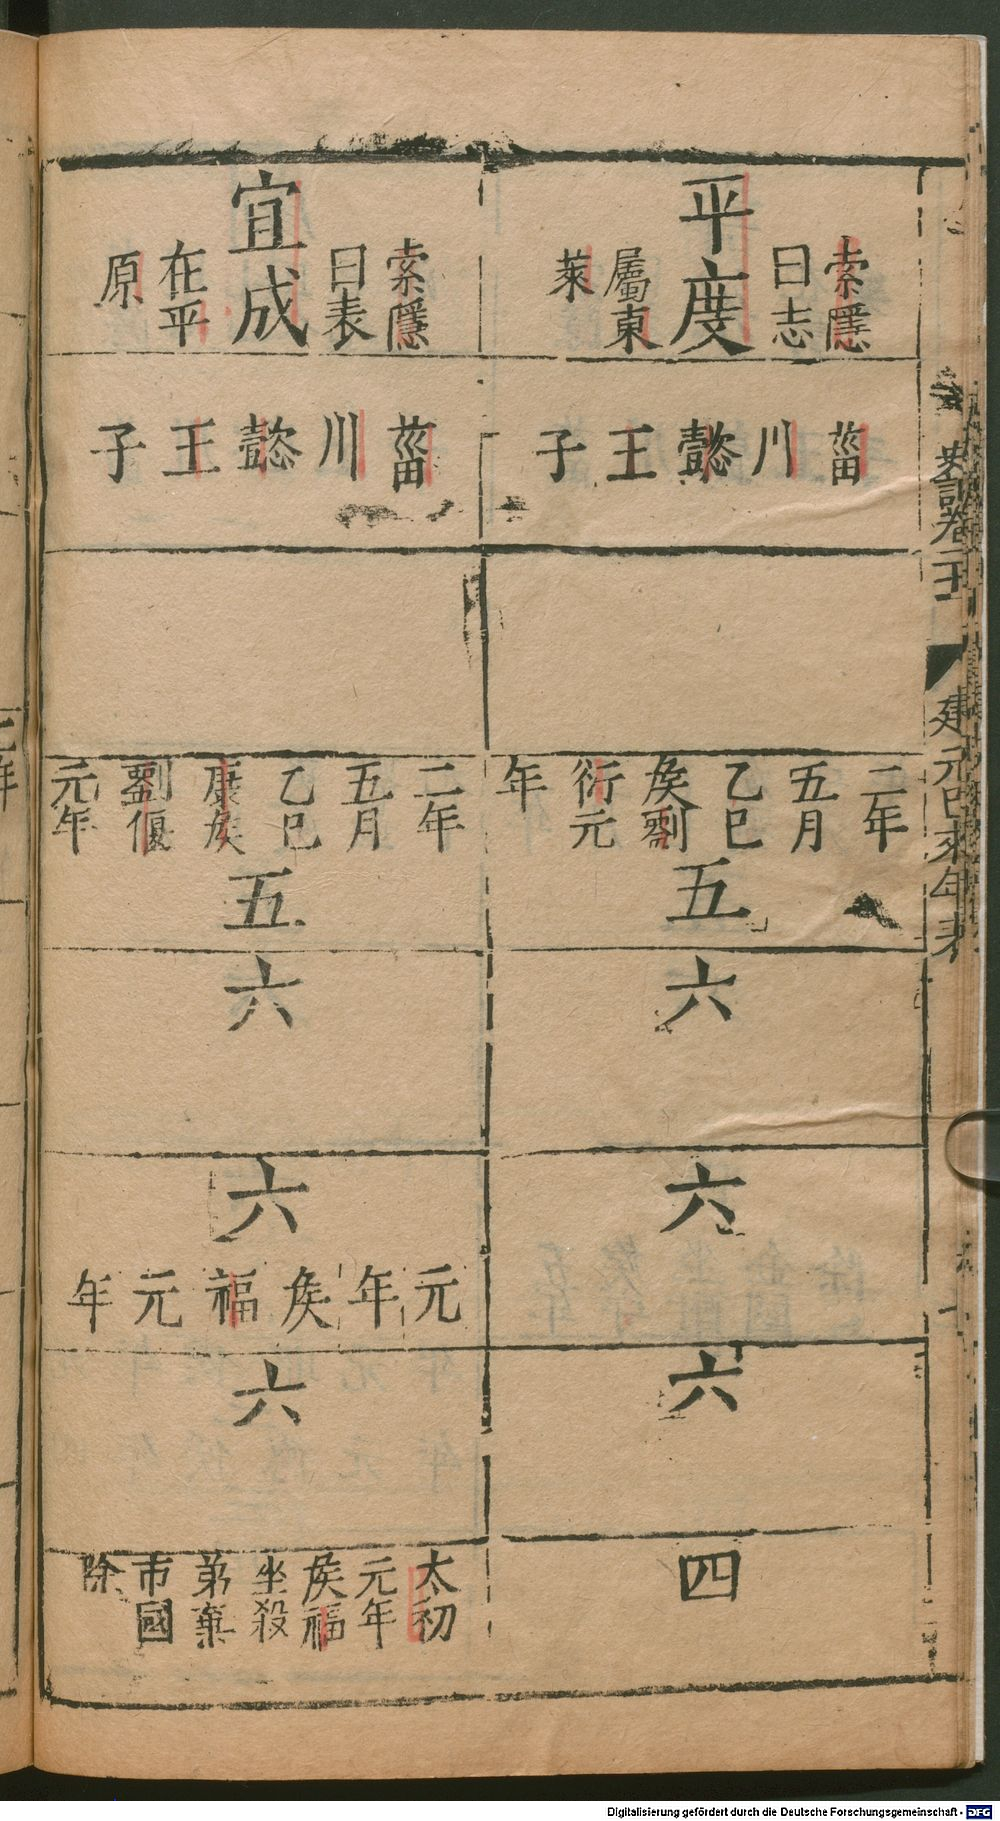 史記卷二十一
建元已來年表
平度
索隱
曰志
屬東
萊
菑川懿王子
二年
五月
乙巳
侯劉
衍元
年
五
六
六
六
四
宜成
索隱
曰表
在平
原
菑川懿王子
二年
五月
乙巳
康侯
劉偃
元年
五
六
六
元年侯福元年
六
太初
元年
侯福
坐殺
弟棄
市國
除
Digitalisierung gefördert durch die Deutsche Forschungsgemeinschaft - DFG